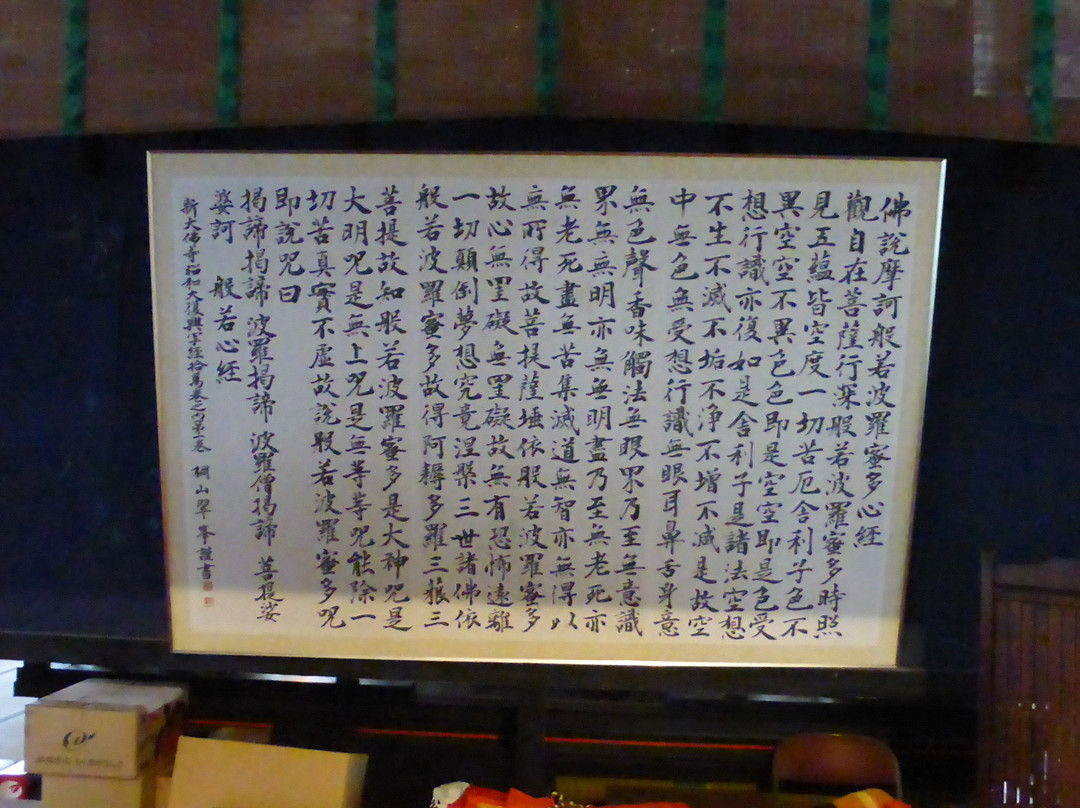 佛說摩訶般若波羅蜜多心経
觀自在菩薩行深般若波羅蜜多時照
見五蘊皆空度一切苦厄舎利子色不
異空空不異色色即是空空即是色受
想行識亦復如是舎利子是諸法空想
不生不滅不垢不浄不增不減是故空
中無色無受想行識無眼耳鼻舌身意
無色聲香味觸法無眼界乃至無意識
界無無明亦無無明盡乃至無老死亦
無老死盡無苦集滅道無智亦無得以
無所得故菩提薩埵依般若波羅蜜多
故心無罣礙無罣礙故無有恐怖遠離
一切顛倒夢想究竟涅槃三世諸佛依
般若波羅蜜多故得阿耨多羅三藐三
菩提故知般若波羅蜜多是大神咒是
大明咒是無上咒是無等等咒能除一
切苦真實不虛故說般若波羅蜜多咒
即說咒曰
揭諦揭諦 波羅揭諦 波羅僧揭諦 菩提娑
婆訶 般若心経
新大佛寺昭和大復興写経拾萬巻之第一巻 山翠峯謹書